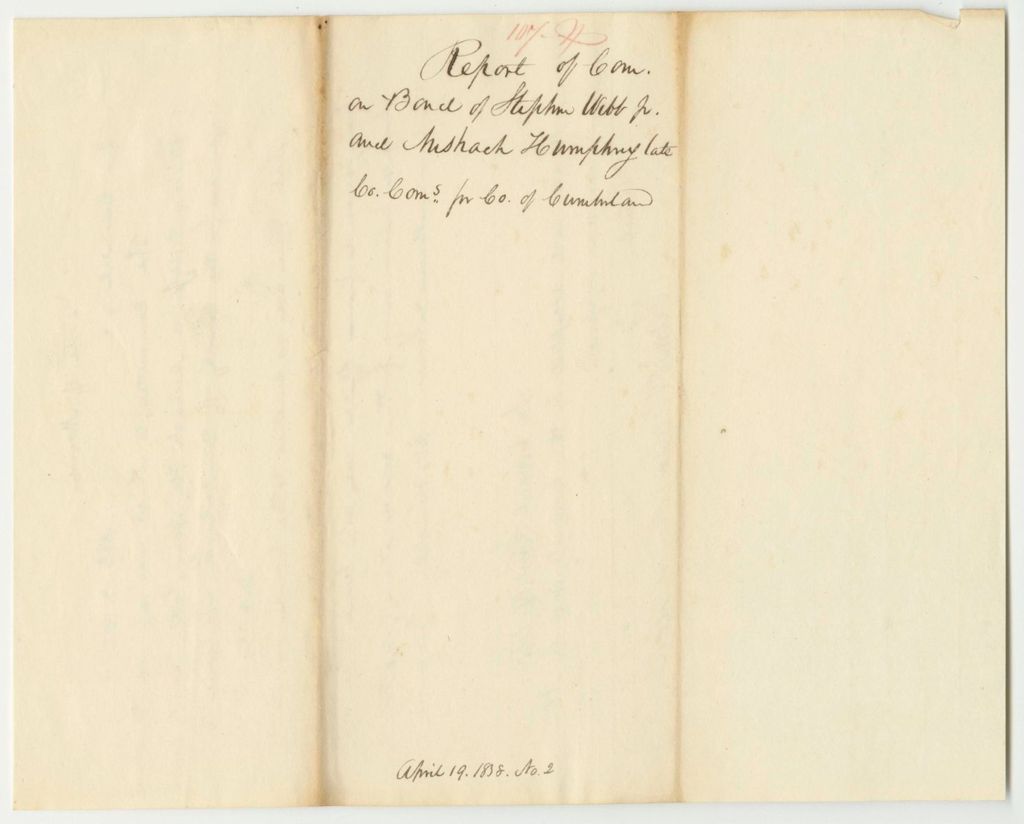 107. H
Report of Com.
on Bond of Stephen Webb Jr.
and Mishach Humphrey late
Co. Coms. for Co. of Cumberland
April 19. 1838. No. 2